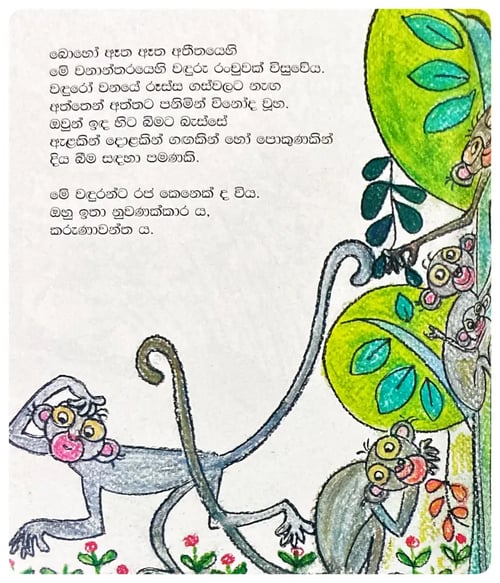 බොහෝ ඈත ඈත අතීතයෙහි
මේ වනාන්තරයෙහි වඳුරු රංචුවක් විසුවේය.
වඳුරෝ වනයේ රූස්ස ගස්වලට නැඟ
අත්තෙන් අත්තට පනිමින් විනෝද වූහ.
ඔවුන් ඉඳ හිට බිමට බැස්සේ
ඇළකින් දොළකින් ගඟකින් හෝ පොකුණකින්
දිය බීම සඳහා පමණකි.
මේ වඳුරන්ට රජ කෙනෙක් ද විය.
ඔහු ඉතා නුවණක්කාර ය,
කරුණාවන්ත ය.